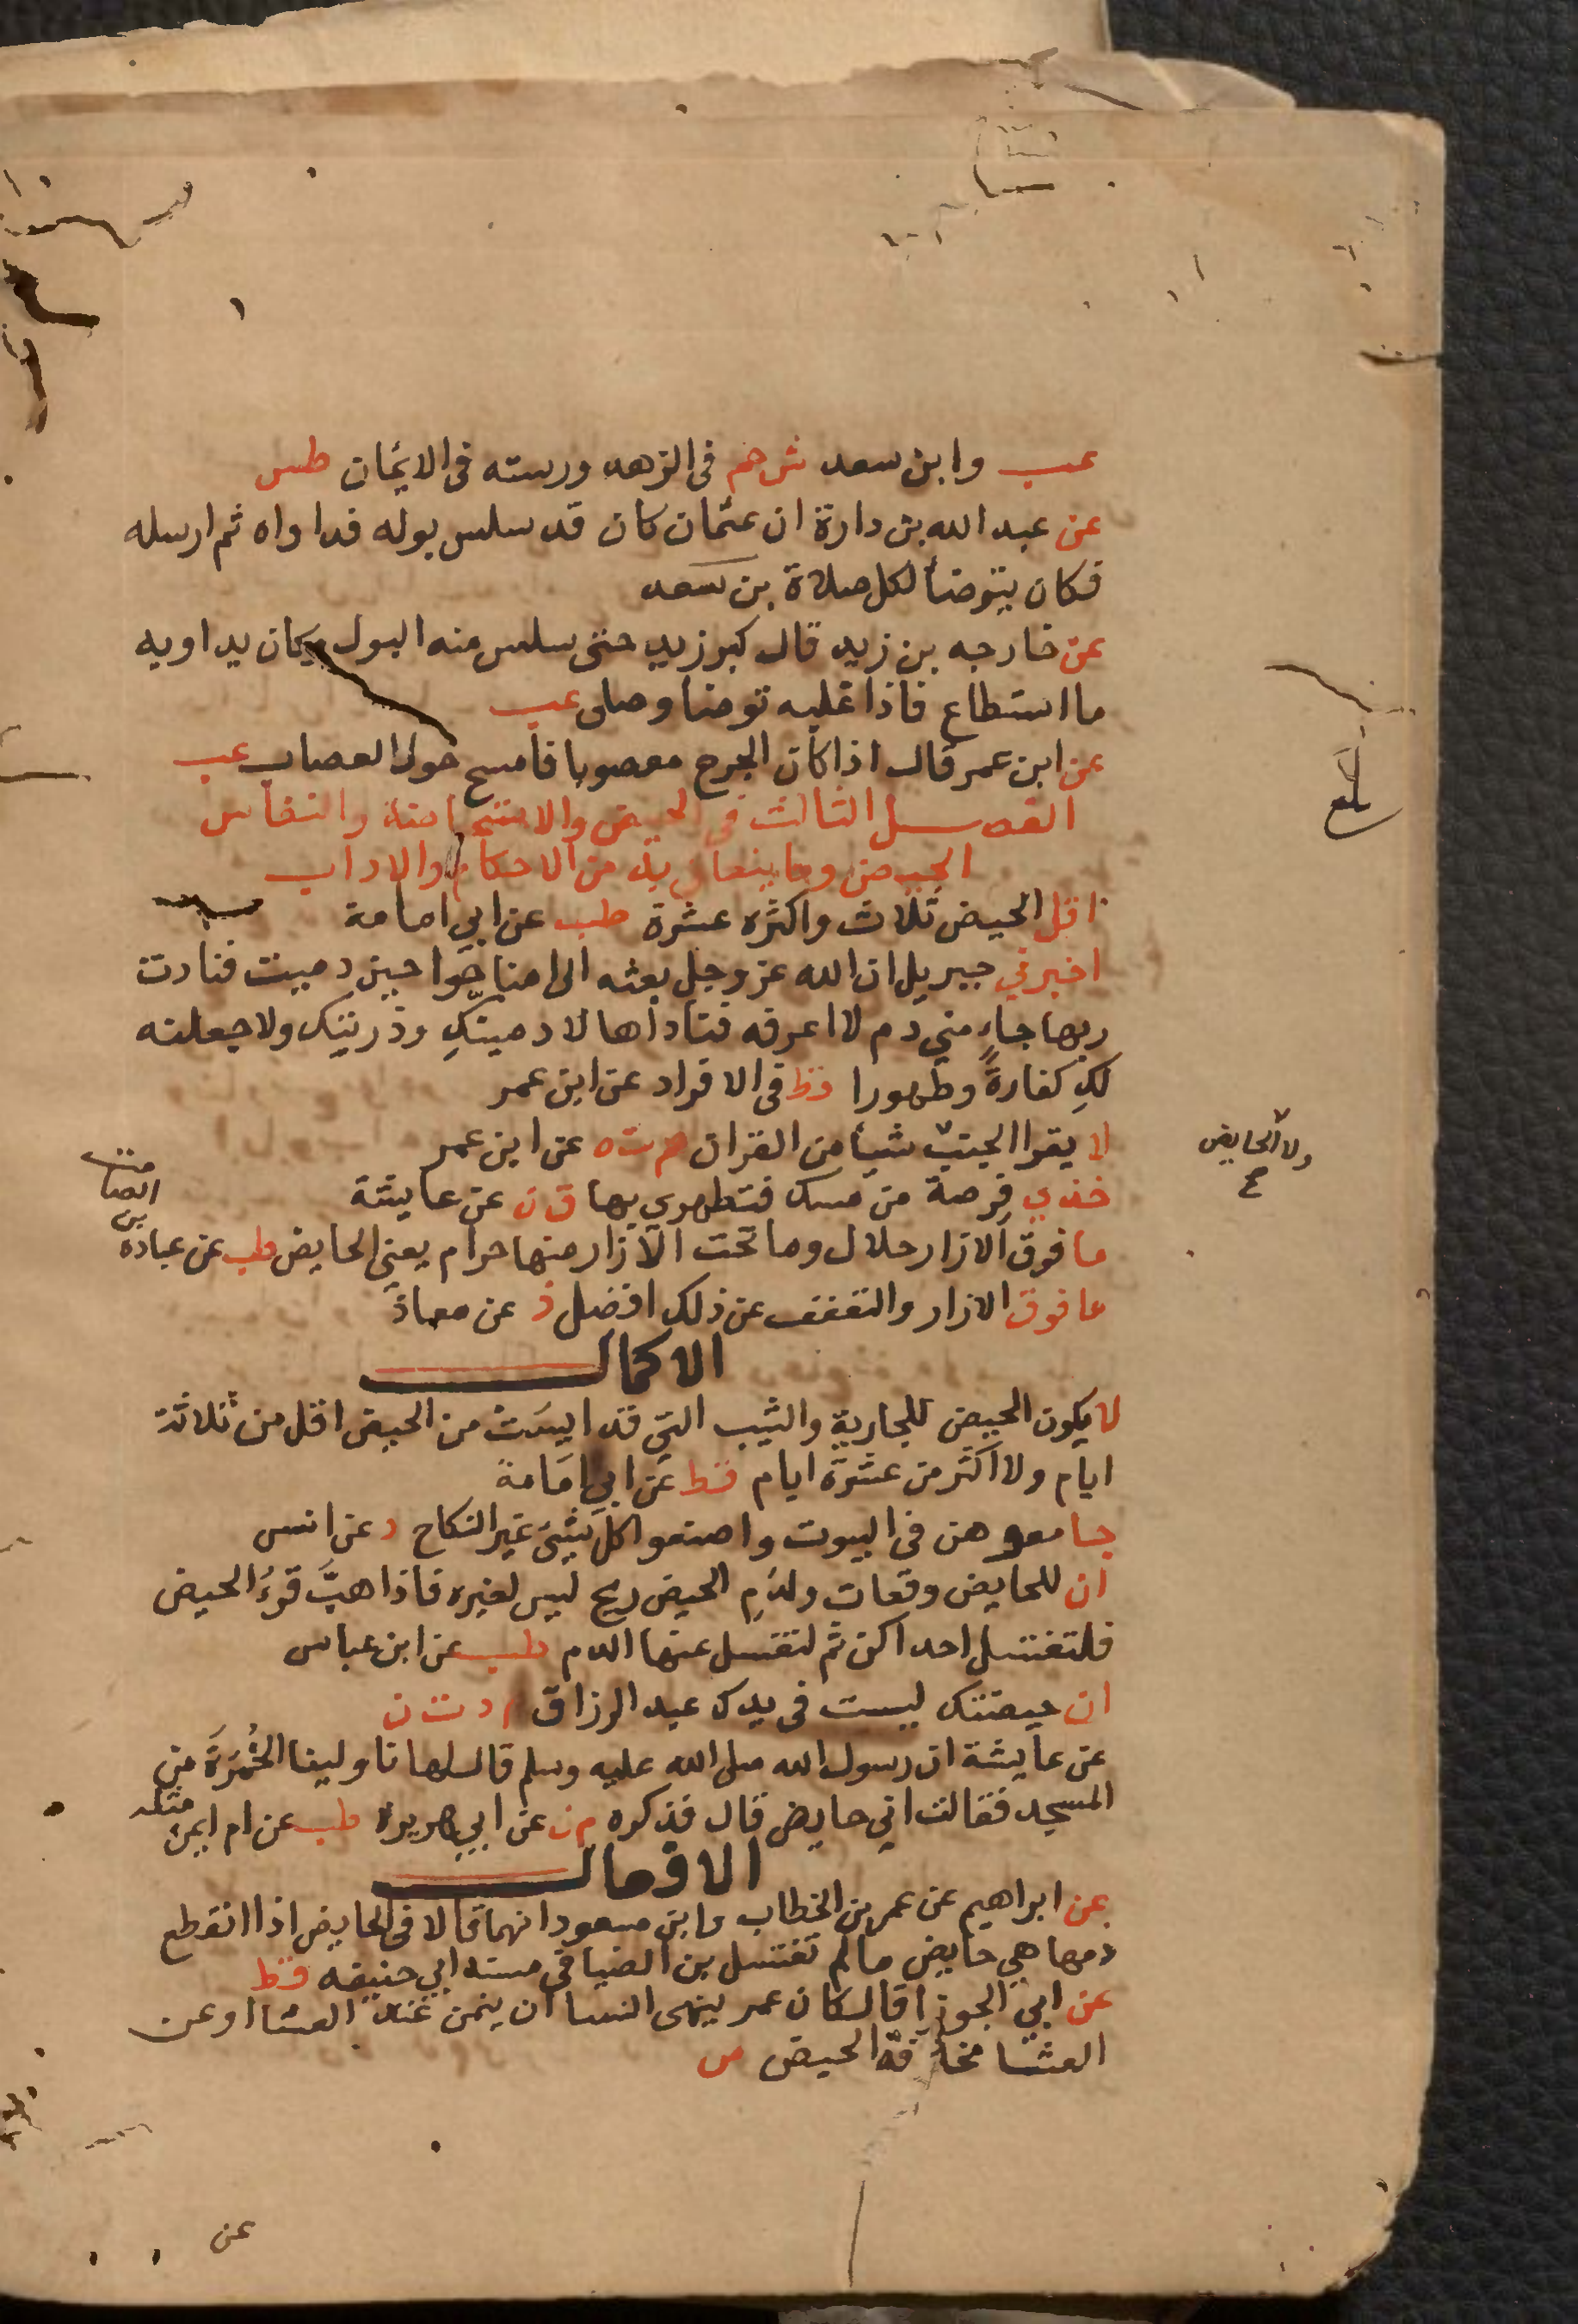 عب وابن سعد ش حم فى الزهد ورسته فى الايمان طس
عن عبد الله بن دارة ان عثمان كان قد سلس بوله فداواه ثم ارسله
فكان يتوضأ لكل صلاة بن سعد
عن خارجه بن زيد قال كبر زيد حتى سلس منه البول وكان يداويه
ما استطاع فاذا غلبه توضا وصلى عب
عن ابن عمر قال اذا كان الجرح معصوبا فامسح حول العصاب عب
الفصل الثالث فى الحيض والاستحاضة والنفاس
الحيض وما يتعلق به من الاحكام والاداب
اقل الحيض ثلاث واكثره عشرة طب عن ابي امامة
اخبرني جبريل ان الله عز وجل بعثه الى امنا حوا حين دميت فنادت
ربها جاء مني دم لا اعرفه فناداها لادمينكِ وذريتك ولاجعلنه
لكِ كفارةً وطهورا قط فى الافراد عن ابن عمر
لا يقرا الجنب شيأ من القران حم ت ه عن ابن عمر
ولا الحايض
خذي فِرصة من مسك فتطهري بها ق ن عن عايشة
ما فوق الازار حلال وما تحت الازار منها حرام يعنى الحايض طب عن عبادة
بن
الصامت
ما فوق الازار والتعفف عن ذلك افضل د عن معاذ
الاكمال
لا يكون الحيض للجارية والثيب التي قد ايست من الحيض اقل من ثلاثة
ايام ولا اكثر من عشرة ايام قط عن ابي امامة
جامعوهن فى البيوت واصنعوا كل شئ غير النكاح د عن انس
ان للحايض وقعات ولدم الحيض ريح ليس لغيره فاذا هبَّ قرءُ الحيض
فلتغتسل احداكن ثم لتغسل عنها الدم طب عن ابن عباس
ان حيضتك ليست فى يدك عبد الرزاق م د ت ن
عن عايشة ان رسول الله صلى الله عليه وسلم قال لها ناولينا الخُمرَةَ من
المسجد فقالت اني حايض قال فذكره م ن عن ابي هريرة طب عن ام ايمن
مثله
الافعال
عن ابراهيم عن عمر بن الخطاب وابن مسعود انهما قالا فى الحايض اذا انقطع
دمها هي حايض ما لم تغتسل بن الضيا فى مسند ابي حنيفه قط
عن ابي الجوزا قال كان عمر ينهى النسا ان ينمن عند العشا او عن
العشا مخافة الحيض ص
عن